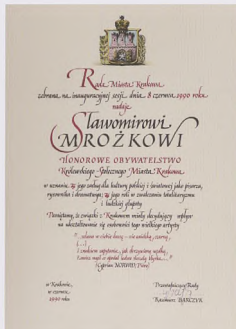 Rada Miasta Krakowa
zebrana na inauguracyjnej sesji dnia 8 czerwca 1990 roku
nadaje
Sławomirowi
MROŻKOWI
HONOROWE OBYWATELSTWO
Królewskiego Stołecznego Miasta Krakowa
w uznaniu jego zasług dla kultury polskiej i światowej jako pisarza,
rysownika i dramaturga; jego roli w zwalczaniu totalitaryzmu
i ludzkiej głupoty
Pamiętamy, że związki z Krakowem miały decydujący wpływ
na ukształtowanie się osobowości tego wielkiego artysty
(Cyprian NORWID,
w Krakowie,
w czerwcu,
1990 roku
Przewodniczący Rady
Kazimierz BARCZYK